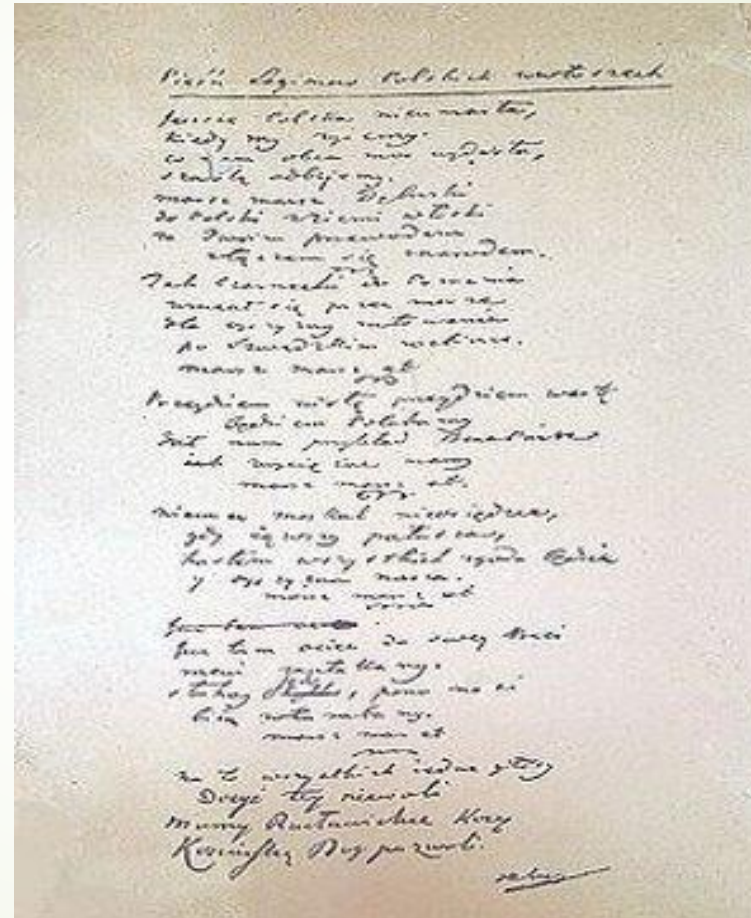 Pieśń Legionów Polskich we Włoszech
Jeszcze Polska nie umarła,
kiedy my żyjemy.
co nam obca moc wydarła,
szablą odbijemy.
marsz marsz Dąbrowski
do Polski z ziemi włoski
za Twoim przewodem
złączem się z narodem.
Jak Czarnecki do Poznania
wracał się przez morze
dla ojczyzny ratowania
po szwedzkim
marsz marsz
Przejdziem Wisłę przejdziem Wartę
będziem Polakami
dał nam przykład Bonaparte
jak zwyciężać mamy
marsz marsz
niemiec moskal nie osiędzie,
gdy
hasłem wszystkich zgoda będzie
y ojczyzna nasza.
marsz marsz
Już tam ociec do swey Basi
mówi zapłakany.
słuchay, pono nasi
biią w tarabany.
marsz marsz
na to wszystkich iedne głosy
Dosyć tey niewoli
Mamy Racławickie Kosy
Kościuszkę Bóg pozwoli.